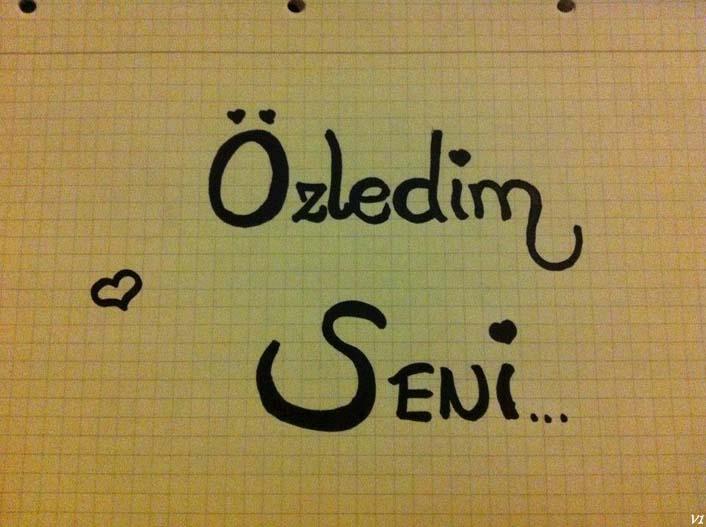 Özledim
SENİ...
VI